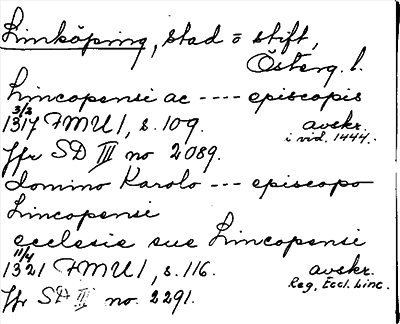 Linköping, stad o stift,
Österg. l.
Lincopensi ac ---- episcopis
3/3
1317 FMU I, s. 109. avskr.
i vid. 1444.
Jfr SD III no 2089.
domino Karolo --- episcopo
Lincopensi
ecclesie sue Lincopensi
11/4
1321 FMU I, s. 116. avskr.
Reg. Eccl. Linc.
Jfr SD III no. 2291.